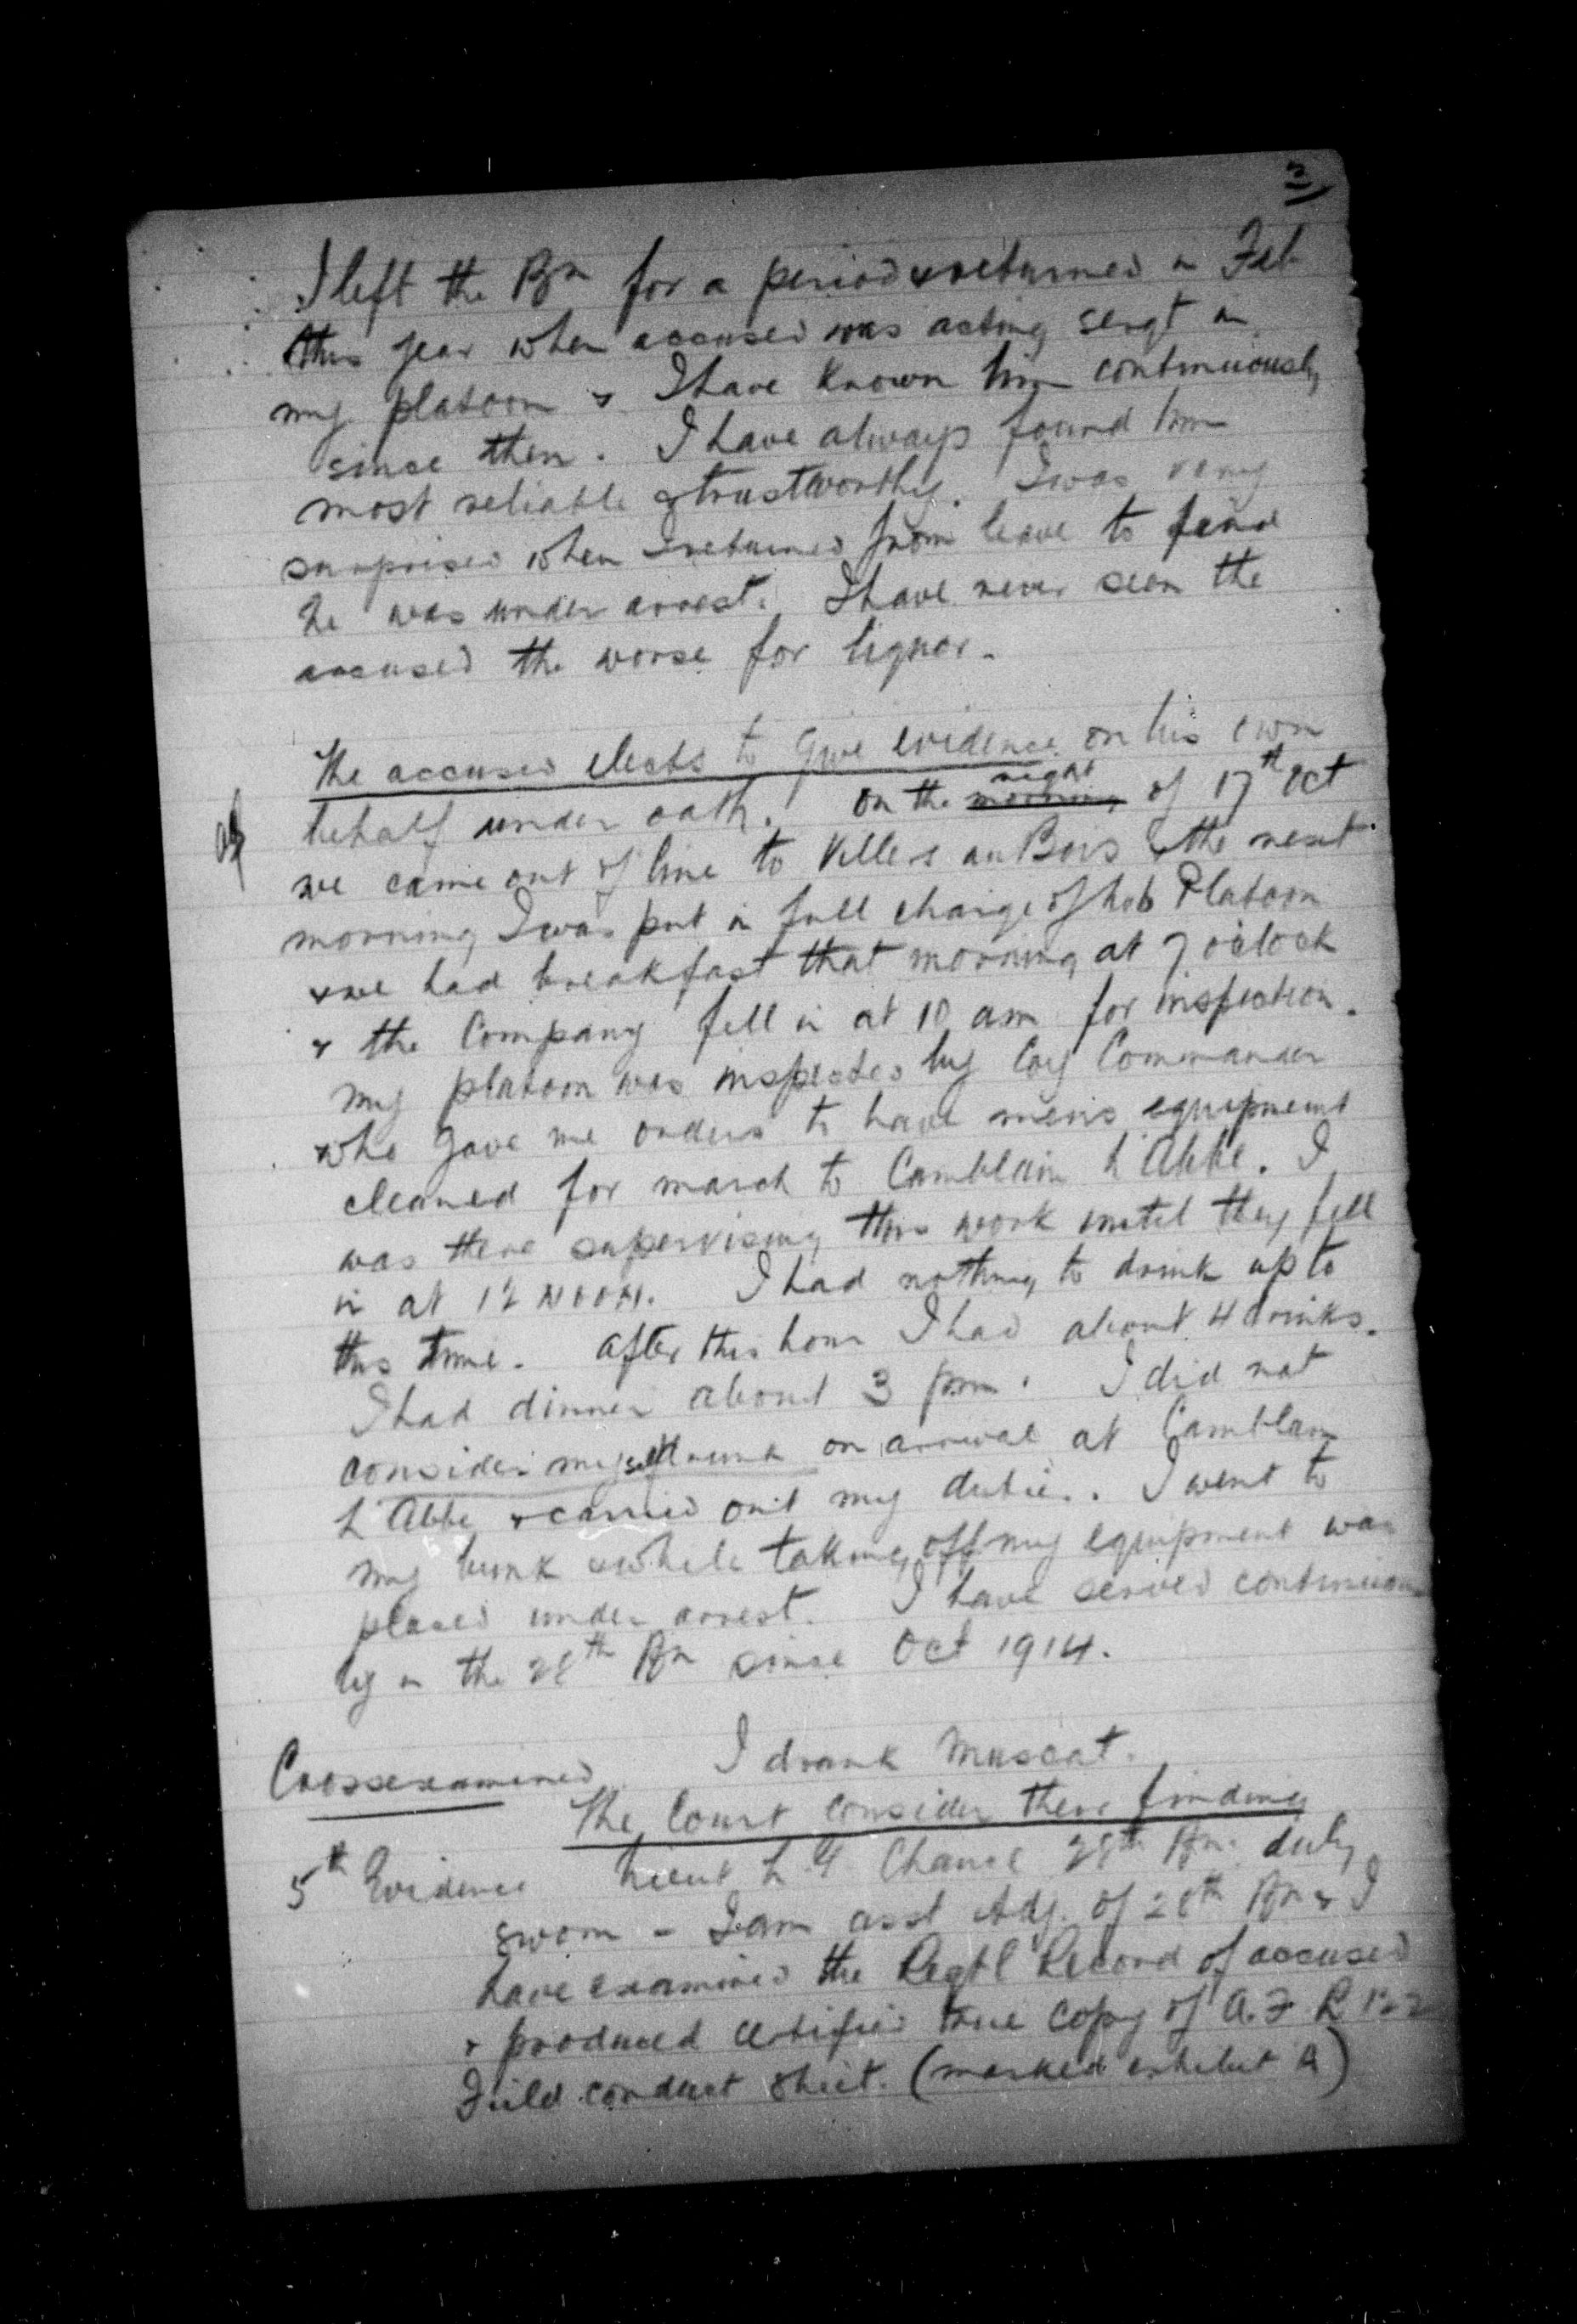 3
I left the Bn for a period & returned in Feb
this year when accused was acting sergt in
my platoon & I have known him continuously
since then. I have always found him
most reliable & trustworthy. I was very
surprised when I returned from leave to find
he was under arrest. I have never seen the
accused the worse for liquor.
The accused elects to give evidence on his own
behalf under oath. On the morning night of 17th Oct
we came out of line to Villers au Bois & the next
morning I was put in full charge of Platoon
& we had breakfast that morning at 7 o'clock
& the Company fell in at 10 am for inspection.
My platoon was inspected by Coy Commander
who gave me orders to have men's equipment
cleaned for march to Camblain L'Abbe. I
was there supervising this work until they fell
in at 12 NOON. I had nothing to drink up to
this time. After this hour I had about 4 drinks.
I had dinner about 3 pm. I did not
consider myself drunk on arrival at Camblain
L'Abbe & carried out my duties. I went to
my bunk & while taking off my equipment was
placed under arrest. I have served continuous
ly in the 28th Bn since Oct 1914.
Crossexamined I drank Muscat.
The Court consider there finding
5th Evidence Lieut L. Chance 28th Bn. duly
sworn - I am asst Adj. of 28th Bn & I
have examined the Regtl Record of accused
& produced certified true copy of A.F. B 122
Field conduct sheet. (marked exhibit A)